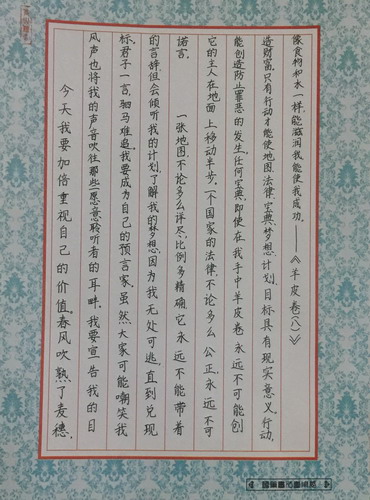 今天我要加倍重视自己的价值。春风吹熟了麦穗，
风声也将我的声音吹往那些愿意聆听者的耳畔。我要宣告我的目
标。君子一言，驷马难追。我要成为自己的预言家。虽然大家可能嘲笑我
的言辞，但会倾听我的计划，了解我的梦想，因为我无处可逃，直到兑现
诺言。 一张地图，不论多么详尽，比例多精确，它永远不可能带着
它的主人在地面上移动半步。一个国家的法律，不论多么公正，永远不可
能创造防止罪恶的发生。任何宝典，即使在我手中羊皮卷，永远不可能创
造财富。只有行动才能使地图、法律、宝典、梦想、计划、目标具有现实意义。行动，
像食物和水一样，能滋润我，能使我成功。——《羊皮卷（八）》